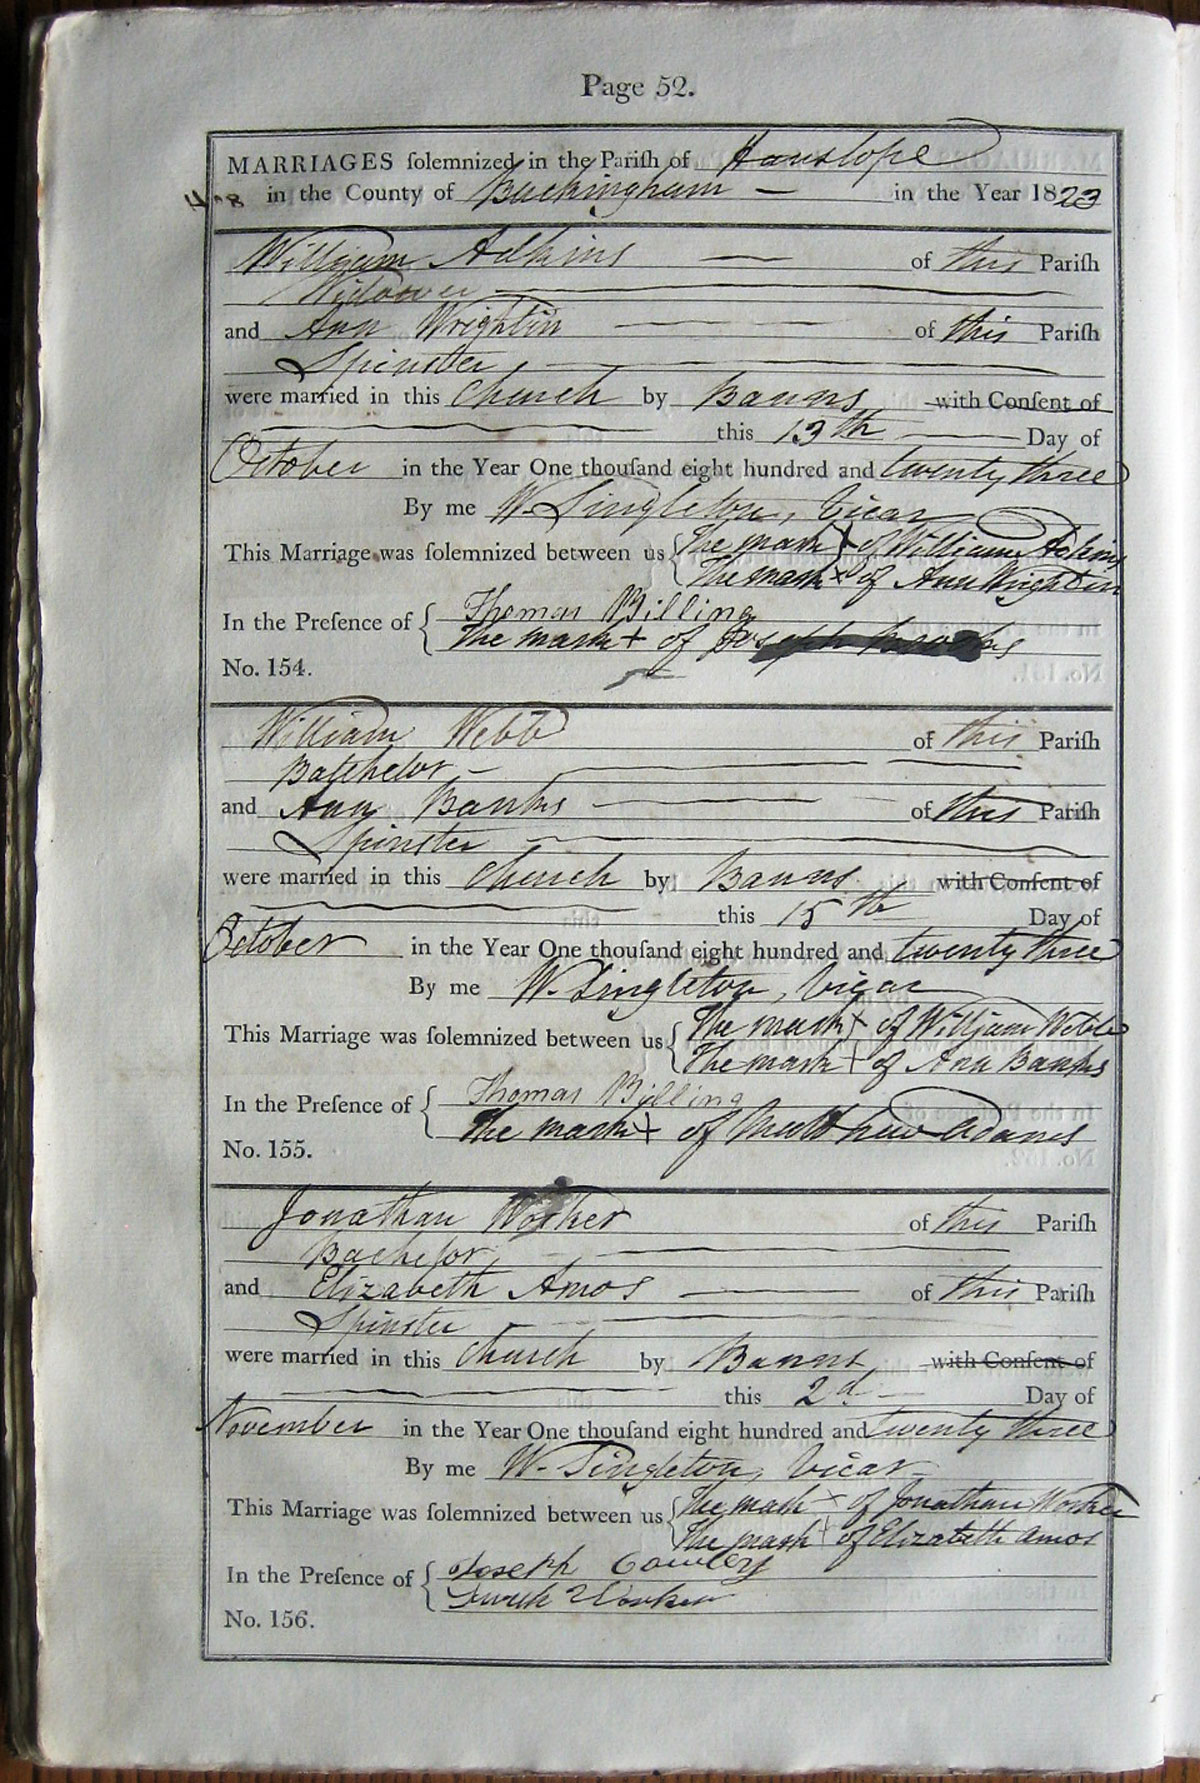 Page 52.
MARRIAGES ſolemnized in the Pariſh of Hanslope
in the County of Buckingham — in the Year 1823
William Adkins — of this Pariſh
Widower
and Ann Wrightin — of this Pariſh
Spinster
were married in this Church by Banns with Conſent of
this 13th — Day of
October in the Year One thouſand eight hundred and twenty three
By me W. Singleton, Vicar
This Marriage was ſolemnized between us { The mark X of William Adkins
The mark X of Ann Wrightin
In the Preſence of { Thomas Billing
The mark + of Joseph Brooks
No. 154.
William Webb of this Pariſh
Batchelor —
and Ann Banks — of this Pariſh
Spinster
were married in this Church by Banns with Conſent of
this 15th Day of
October in the Year One thouſand eight hundred and twenty three
By me W. Singleton, Vicar
This Marriage was ſolemnized between us { The mark + of William Webb
The mark + of Ann Banks
In the Preſence of { Thomas Billing
The mark + of Matthew Adams
No. 155.
Jonathan Worker of this Pariſh
Bachelor
and Elizabeth Amos — of this Pariſh
Spinster
were married in this Church by Banns with Conſent of
this 2d — Day of
November in the Year One thouſand eight hundred and twenty three
By me W. Singleton, Vicar
This Marriage was ſolemnized between us { The mark X of Jonathan Worker
The mark + of Elizabeth Amos
In the Preſence of { Joseph Cowley
Worker
No. 156.